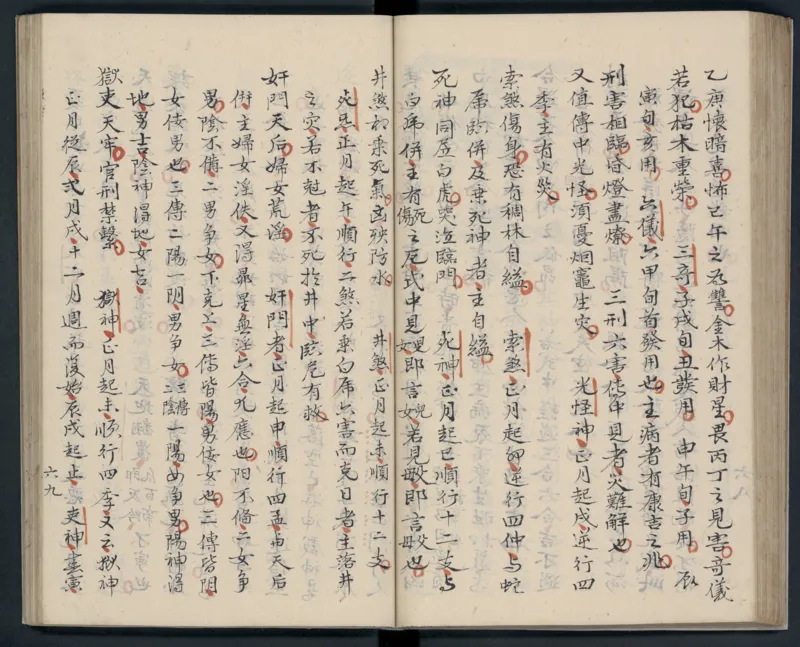 乙庚懷暗喜怖己午之為讐金木作財星畏丙丁之見害奇儀
若犯枯木重榮　三奇子戌旬丑發用申午旬子用辰
寅旬亥用　六儀六甲旬首發用也主病者有康吉之兆
刑害相臨昏燈盡燎　三刑六害傳中見者災難解也
又值傳中光怪須憂烟竈生災　光怪神正月起戌逆行四
季主有火災
索煞傷身恐有稠林自縊　索煞正月起卯逆行四仲与蛇
虎臨併及乗死神者主自縊
死神同虎白虎哭泣臨門　死神正月起巳順行十二支与
白虎併主有死傷之厄式中見嬰即言嬰兒若見母即言母也
井煞相乗死氣凶殃防水　井煞正月起未順行十二支
死炁正月起午順行二煞若乗白虎六害而克日者主落井
之灾若不尅者不死於井中臨危有救
奸門天后婦女荒淫　奸門者正月起申順行四孟与天后
併主婦女淫佚又得晁星無淫六合九應也陽不俻二女爭
男陰不俻二男爭女下克上三傳皆陽男倿女也三傳皆阴
女倿男也三傳二陽一阴男爭女三傳二陰一陽女爭男陽神得
地男吉陰神得地女吉
獄吏天牢官刑禁繫　獄神正月起未順行四季又云獄神
正月從辰弍月戌十二月週而復始辰戌起止　吏神書寅
六九